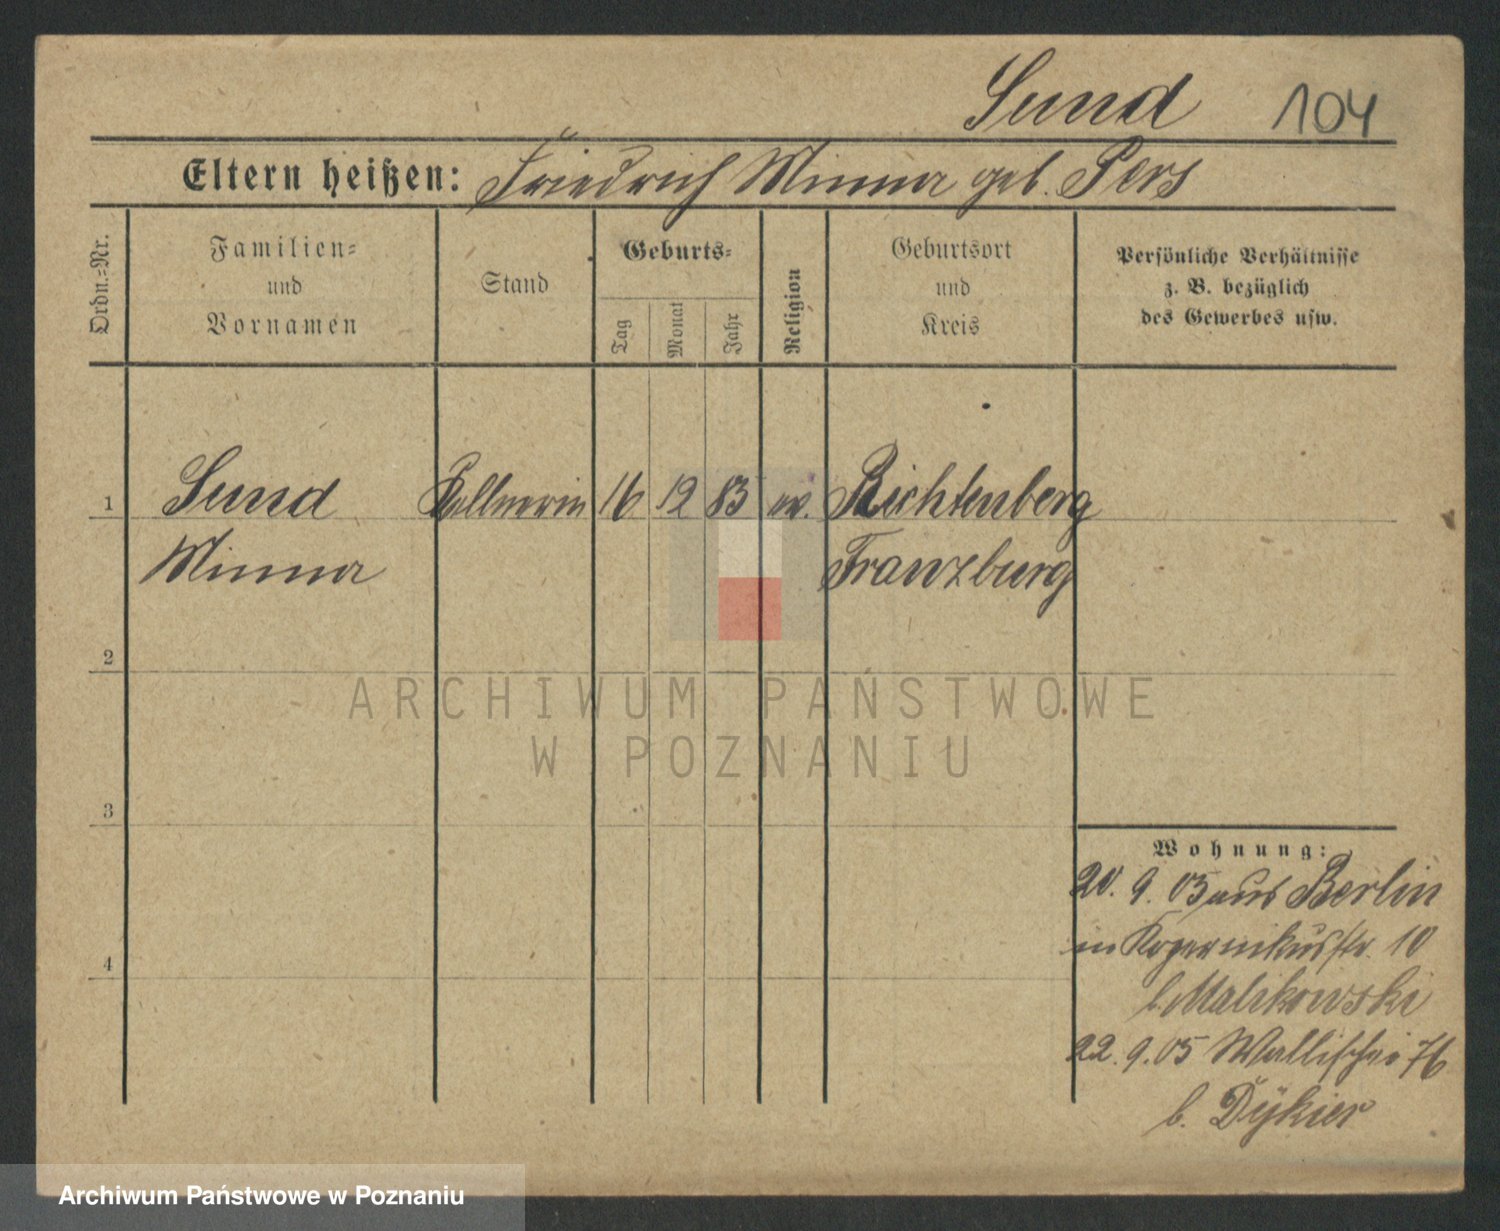 Sund 104
Eltern heißen: Friedrich Minna geb. Pers
Ordn.-Nr.
Familien-
und
Vornamen
Stand
Geburts-
Tag
Monat
Jahr
Religion
Geburtsort
und
Kreis
Persönliche Verhältnisse
z. B. bezüglich
des Gewerbes usw.
1 Sund Kellnerin 16 12 83 ev. Richtenberg
Minna Franzburg
2
3
4
Wohnung:
20. 9. 05 aus Berlin
in Kopernikusstr. 10
b. Malikowski
22. 9. 05 Wallischei 76
b. Dÿkier
ARCHIWUM PAŃSTWOWE
W POZNANIU
Archiwum Państwowe w Poznaniu